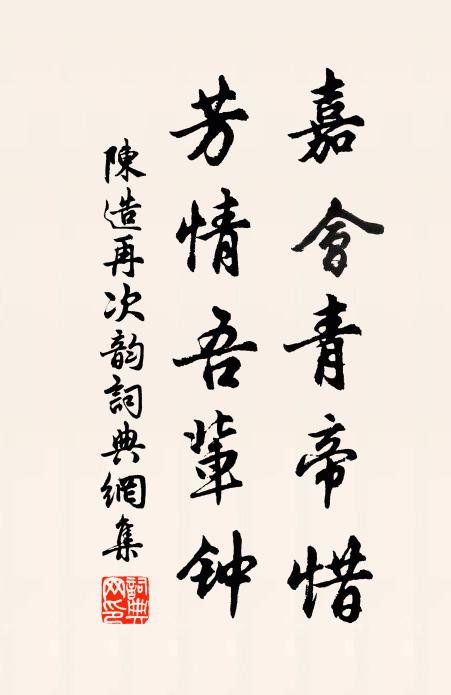 嘉會青帝惜
芳情吾輩钟
陳造再次韵詞典網集
詞典網印